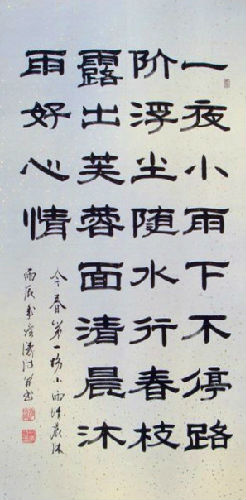 一夜小雨下不停路
阶浮尘随水行春枝
露出芙蓉面清晨沐
雨好心情
今春第一场小雨
丙辰